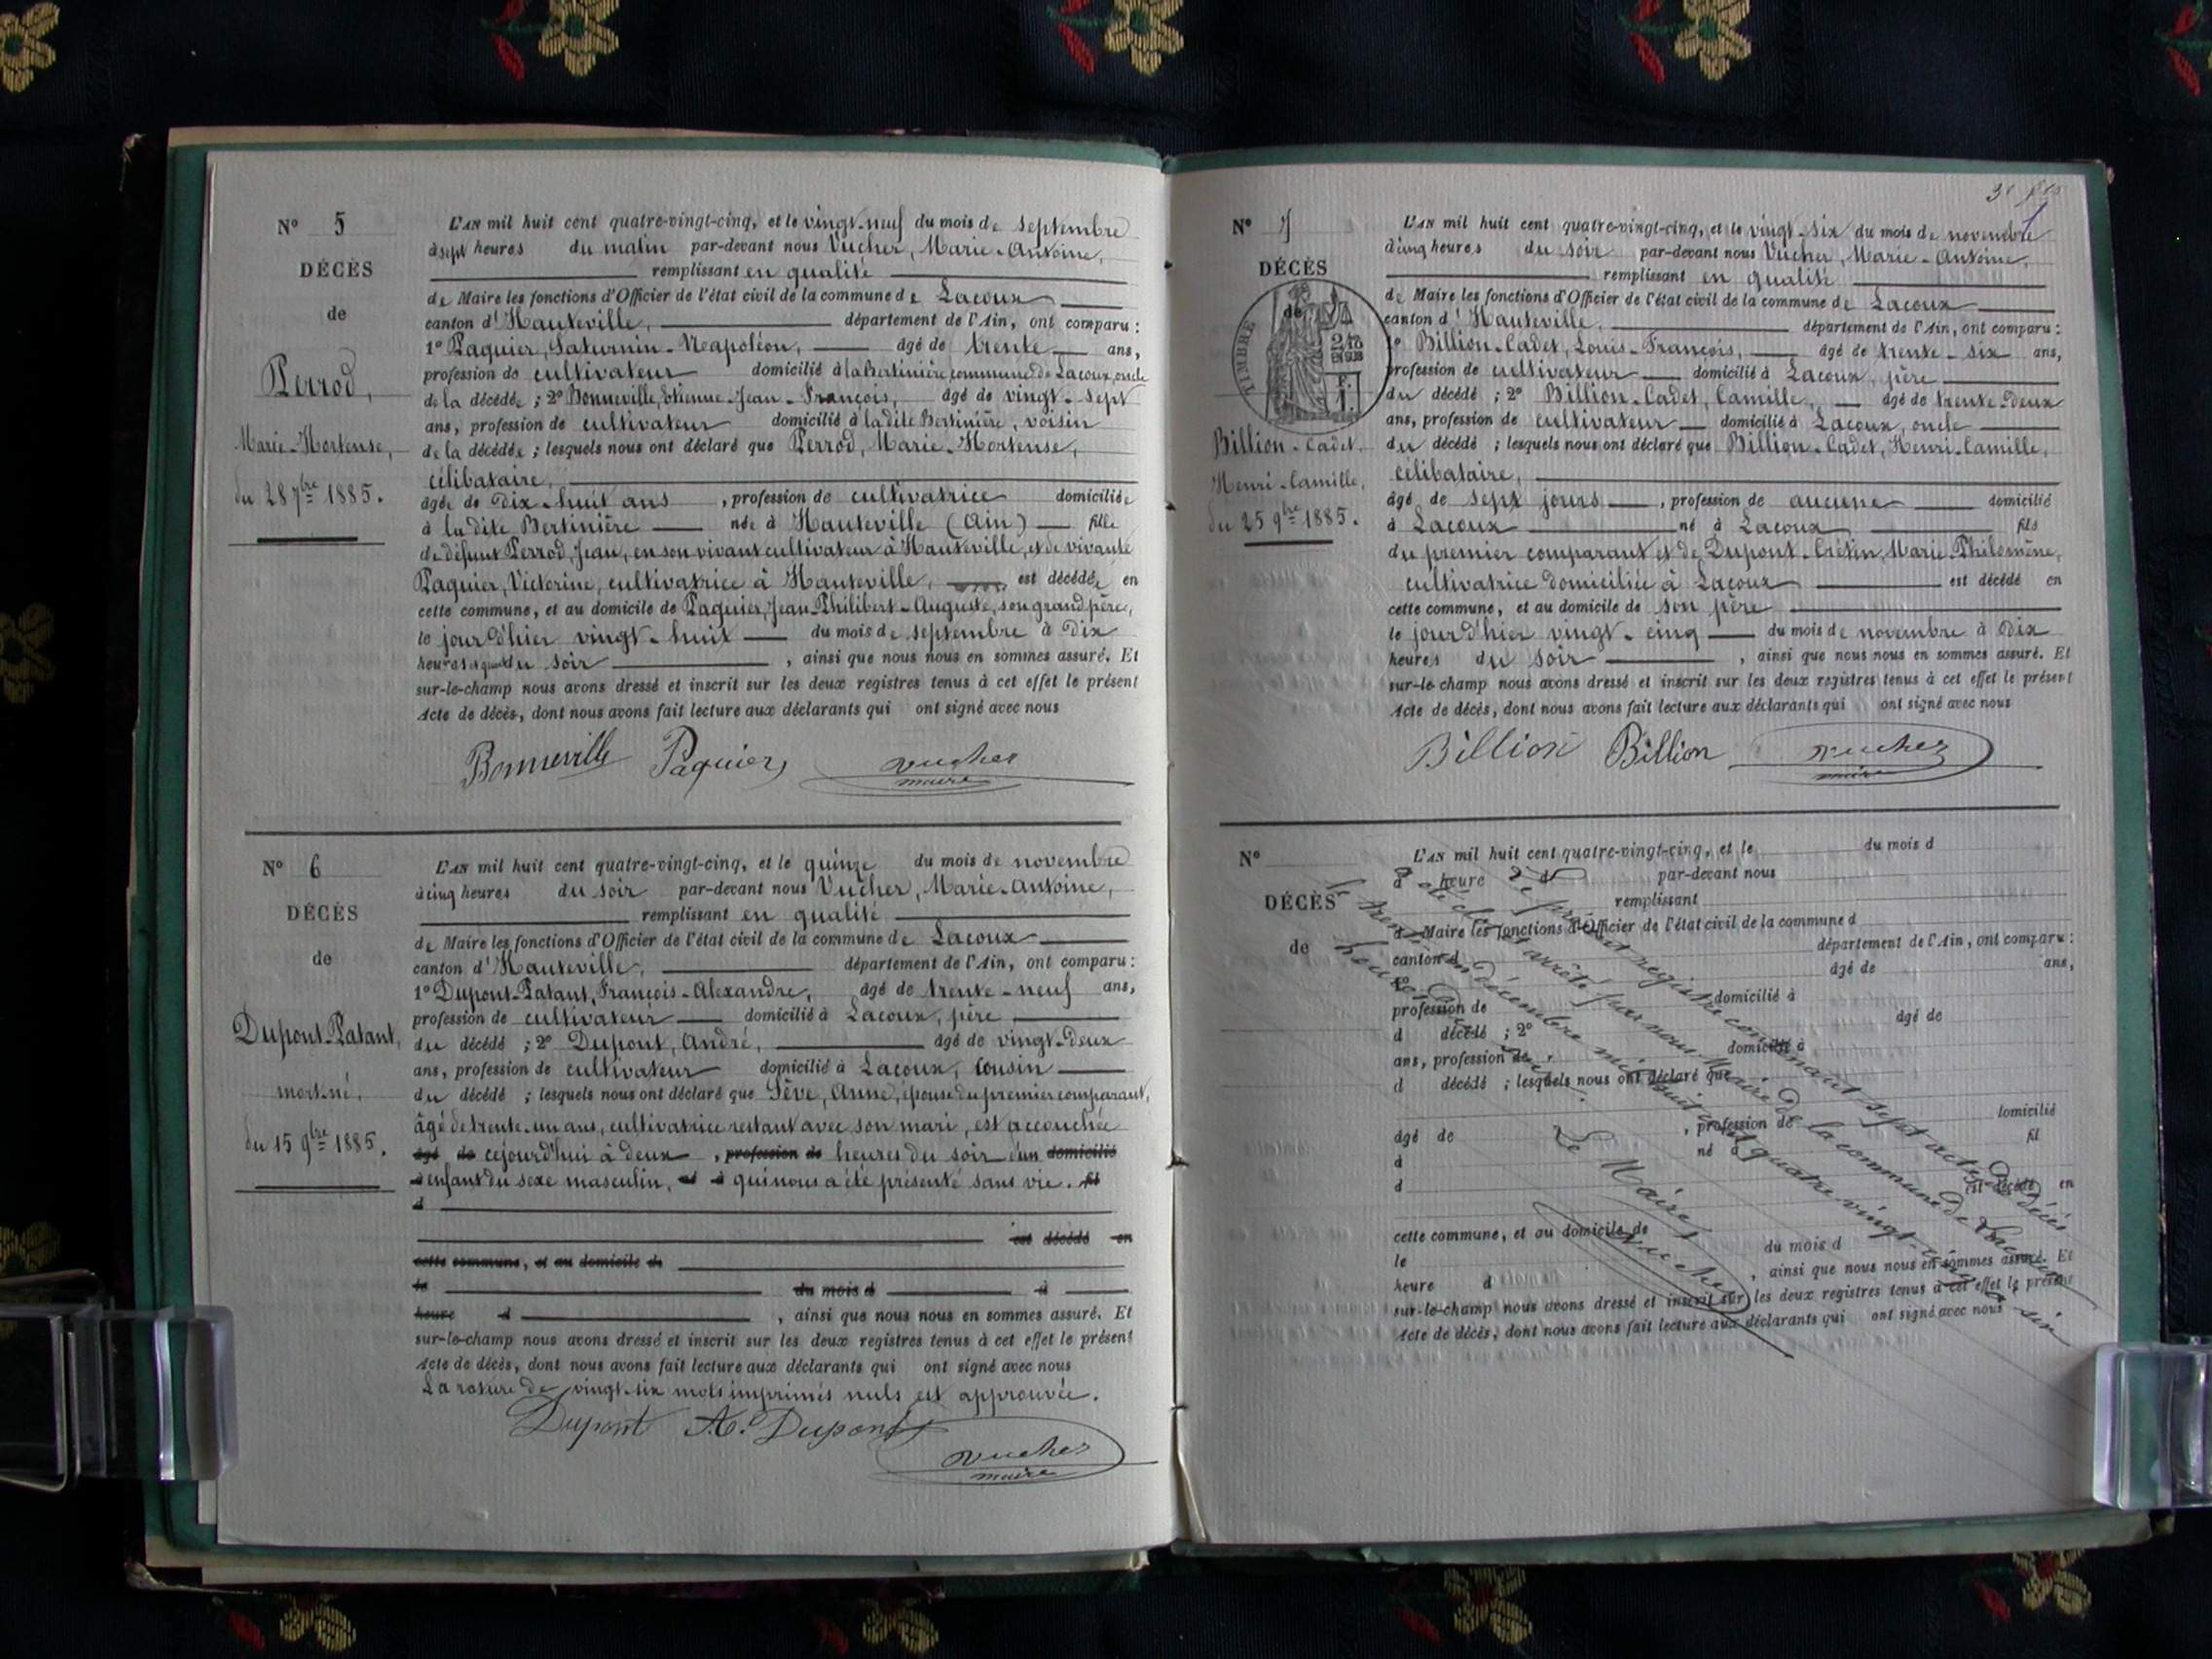 N° 5
DÉCÈS
de
Perrod,
Marie-Hortense,
du 28 7bre 1885.
L'AN mil huit cent quatre-vingt-cinq, et le vingt-neuf du mois de septembre
à sept heures du matin par-devant nous Vucher, Marie-Antoine,
remplissant en qualité
de Maire les fonctions d'Officier de l'état civil de la commune de Lacoux
canton d'Hauteville, département de l'Ain, ont comparu :
1° Paquier, Saturnin-Napoléon, âgé de trente ans,
profession de cultivateur domicilié à la Bertinière, commune de Lacoux, oncle
de la décédée ; 2° Bonneville, Etienne-Jean-François, âgé de vingt-sept
ans, profession de cultivateur domicilié à la dite Bertinière, voisin
de la décédée ; lesquels nous ont déclaré que Perrod, Marie-Hortense,
célibataire,
âgée de dix-huit ans , profession de cultivatrice domiciliée
à la dite Bertinière née à Hauteville (Ain) fille
de défunt Perrod, Jean, en son vivant cultivateur à Hauteville, et de vivante
Paquier, Victorine, cultivatrice à Hauteville, est décédée en
cette commune, et au domicile de Paquier, Jean-Philibert-Auguste, son grand père,
le jour d'hier vingt-huit du mois de septembre à dix
heures du soir , ainsi que nous nous en sommes assuré. Et
sur-le-champ nous avons dressé et inscrit sur les deux registres tenus à cet effet le présent
Acte de décès, dont nous avons fait lecture aux déclarants qui ont signé avec nous
Bonneville Paquier Vucher
maire
N° 6
DÉCÈS
de
Dupont-Patant,
mort-né,
du 15 9bre 1885.
L'AN mil huit cent quatre-vingt-cinq, et le quinze du mois de novembre
à cinq heures du soir par-devant nous Vucher, Marie-Antoine,
remplissant en qualité
de Maire les fonctions d'Officier de l'état civil de la commune de Lacoux
canton d'Hauteville, département de l'Ain, ont comparu :
1° Dupont-Patant, François-Alexandre, âgé de trente-neuf ans,
profession de cultivateur domicilié à Lacoux, père
du décédé ; 2° Dupont, André, âgé de vingt-deux
ans, profession de cultivateur domicilié à Lacoux, cousin
du décédé ; lesquels nous ont déclaré que Sève, Anne, épouse du premier comparant,
âgé de trente-un ans, cultivatrice restant avec son mari, est accouchée
âgé de cejourd'hui à deux , profession de heures du soir d'un domicilié
à enfant du sexe masculin, né à qui nous a été présenté sans vie. fil
d
est décédé en
cette commune, et au domicile de
le du mois d à
heure d , ainsi que nous nous en sommes assuré. Et
sur-le-champ nous avons dressé et inscrit sur les deux registres tenus à cet effet le présent
Acte de décès, dont nous avons fait lecture aux déclarants qui ont signé avec nous
La rature de vingt-six mots imprimés nuls est approuvée.
Dupont Ad. Dupont
Vucher
maire
N° 7
DÉCÈS
de
TIMBRE
Billion-Cadet,
Henri-Camille,
du 25 9bre 1885.
L'AN mil huit cent quatre-vingt-cinq, et le vingt-six du mois de novembre
à cinq heures du soir par-devant nous Vucher, Marie-Antoine,
remplissant en qualité
de Maire les fonctions d'Officier de l'état civil de la commune de Lacoux
canton d'Hauteville, département de l'Ain, ont comparu :
1° Billion-Cadet, Louis-François, âgé de trente-six ans,
profession de cultivateur domicilié à Lacoux, père
du décédé ; 2° Billion-Cadet, Camille, âgé de trente-deux
ans, profession de cultivateur domicilié à Lacoux, oncle
du décédé ; lesquels nous ont déclaré que Billion-Cadet, Henri-Camille,
célibataire,
âgé de sept jours , profession de aucune domicilié
à Lacoux né à Lacoux fils
du premier comparant et de Dupont-Crétin, Marie-Philomène,
cultivatrice domiciliée à Lacoux est décédé en
cette commune, et au domicile de son père
le jour d'hier vingt-cinq du mois de novembre à dix
heures du soir , ainsi que nous nous en sommes assuré. Et
sur-le-champ nous avons dressé et inscrit sur les deux registres tenus à cet effet le présent
Acte de décès, dont nous avons fait lecture aux déclarants qui ont signé avec nous
Billion Billion Vucher
maire
N°
DÉCÈS
de
L'AN mil huit cent quatre-vingt-cinq, et le du mois d
à heure d par-devant nous
remplissant
d Maire les fonctions d'Officier de l'état civil de la commune d
canton d département de l'Ain, ont comparu :
1° âgé de ans,
profession de domicilié à
d décédé ; 2° âgé de
ans, profession de domicilié à
d décédé ; lesquels nous ont déclaré que
âgé de , profession de domicilié
à né à fil
d est décédé en
cette commune, et au domicile de
le du mois d
heure d , ainsi que nous nous en sommes assuré. Et
sur-le-champ nous avons dressé et inscrit sur les deux registres tenus à cet effet le présent
Acte de décès, dont nous avons fait lecture aux déclarants qui ont signé avec nous
Le présent registre contenant sept actes de décès
a été clos et arrêté par nous Maire de la commune de Lacoux
le trente un décembre mil huit cent quatre vingt-cinq, à six
heures du soir.
Le Maire,
Vucher